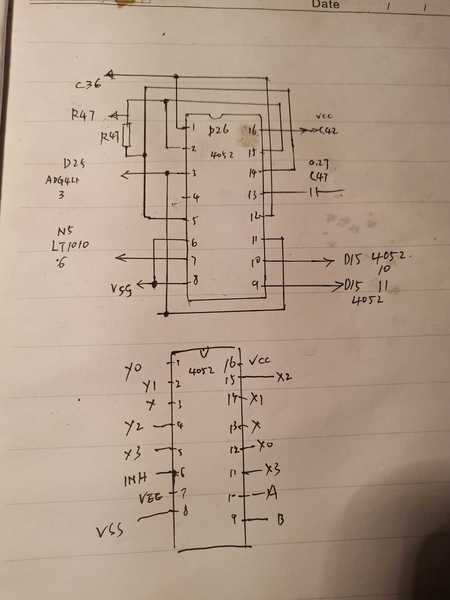 Date / /
C36
R47
R47
D25
ADG441
3
N5
LT1010
.6
VSS
D26
4052
1 16
2 15
3 14
4 13
5 12
6 11
7 10
8 9
VCC
C42
0.27
C47
D15 4052.
10
D15 11
4052
4052
Y0 1 16 VCC
Y1 2 15 X2
X 3 14 X1
Y2 4 13 X
Y3 5 12 X0
INH 6 11 X3
VEE 7 10 A
VSS 8 9 B